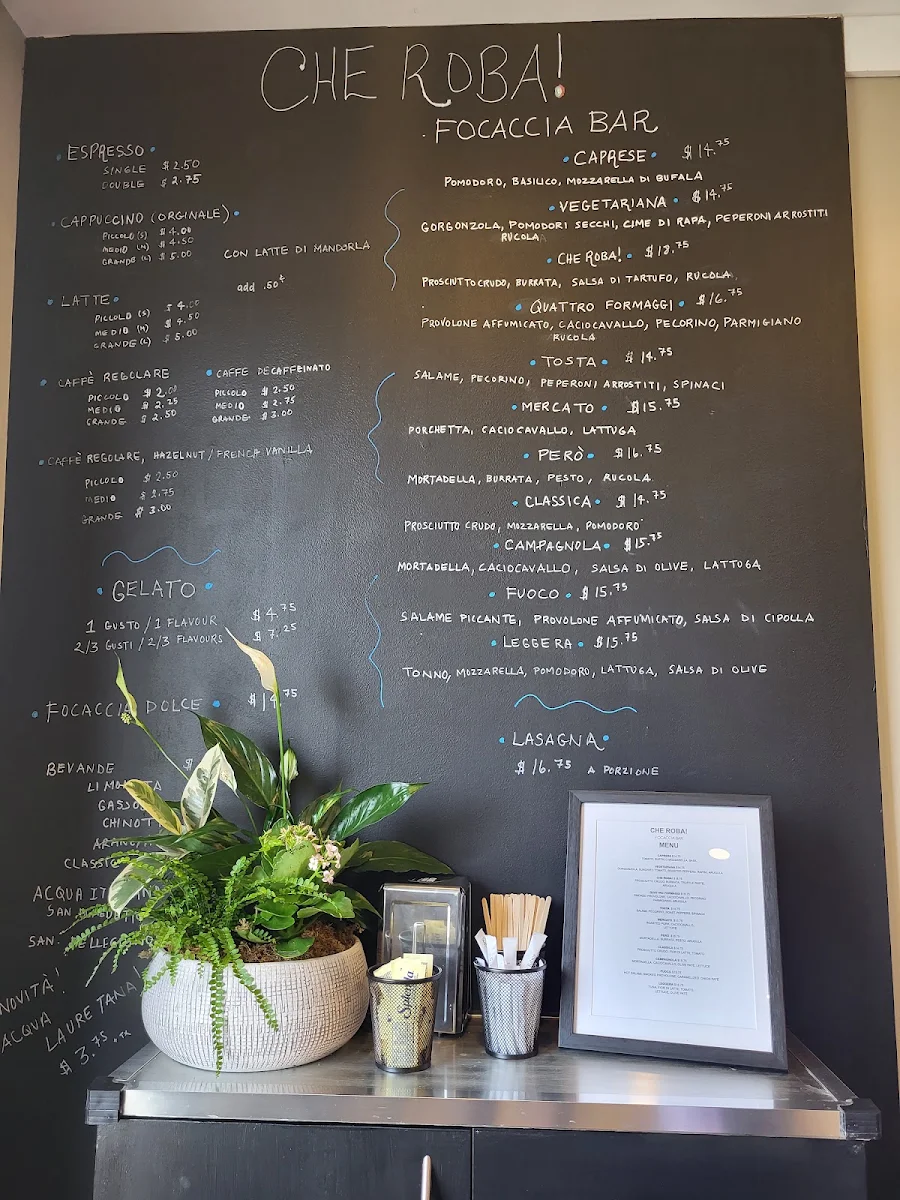 CHE ROBA!
• ESPRESSO •
SINGLE $2.50
DOUBLE $2.75
• CAPPUCCINO (ORGINALE) •
PICCOLO (S) $4.00
MEDIO (M) $4.50
GRANDE (L) $5.00
CON LATTE DI MANDORLA
add .50¢
• LATTE •
PICCOLO (S) $4.00
MEDIO (M) $4.50
GRANDE (L) $5.00
• CAFFÈ REGOLARE
PICCOLO $2.00
MEDIO $2.25
GRANDE $2.50
• CAFFE DECAFFEINATO
PICCOLO $2.50
MEDIO $2.75
GRANDE $3.00
• CAFFÈ REGOLARE, HAZELNUT/FRENCH VANILLA
PICCOLO $2.50
MEDIO $2.75
GRANDE $3.00
• GELATO •
1 GUSTO/1 FLAVOUR $4.75
2/3 GUSTI/2/3 FLAVOURS $7.25
• FOCACCIA DOLCE • $14.75
BEVANDE $
GASSO
CHINOT
CLASSIC
ACQUA
SAN
SAN
NOVITÀ!
ACQUA
LAURETANA
$3.75 +TX
• FOCACCIA BAR
• CAPRESE • $14.75
POMODORO, BASILICO, MOZZARELLA DI BUFALA
• VEGETARIANA • $14.75
GORGONZOLA, POMODORI SECCHI, CIME DI RAPA, PEPERONI ARROSTITI
RUCOLA
• CHE ROBA! • $18.75
PROSCIUTTO CRUDO, BURRATA, SALSA DI TARTUFO, RUCOLA
• QUATTRO FORMAGGI • $16.75
PROVOLONE AFFUMICATO, CACIOCAVALLO, PECORINO, PARMIGIANO
RUCOLA
• TOSTA • $14.75
SALAME, PECORINO, PEPERONI ARROSTITI, SPINACI
• MERCATO • $15.75
PORCHETTA, CACIOCAVALLO, LATTUGA
• PERÒ • $16.75
MORTADELLA, BURRATA, PESTO, RUCOLA
• CLASSICA • $14.75
PROSCIUTTO CRUDO, MOZZARELLA, POMODORO
• CAMPAGNOLA • $15.75
MORTADELLA, CACIOCAVALLO, SALSA DI OLIVE, LATTUGA
• FUOCO • $15.75
SALAME PICCANTE, PROVOLONE AFFUMICATO, SALSA DI CIPOLLA
• LEGGERA • $15.75
TONNO, MOZZARELLA, POMODORO, LATTUGA, SALSA DI OLIVE
• LASAGNA •
$16.75 A PORZIONE
CHE ROBA!
FOCACCIA BAR
MENU